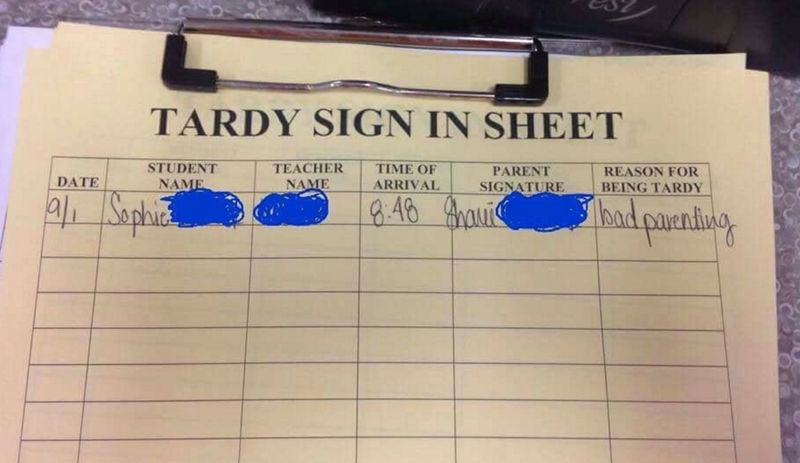 TARDY SIGN IN SHEET
DATE
STUDENT NAME
TEACHER NAME
TIME OF ARRIVAL
PARENT SIGNATURE
REASON FOR BEING TARDY
9/1 Sophie 8:48 bad parenting